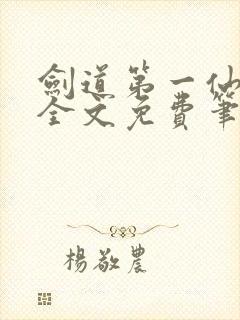 劍道第一仙
全文免費筆
楊敬農